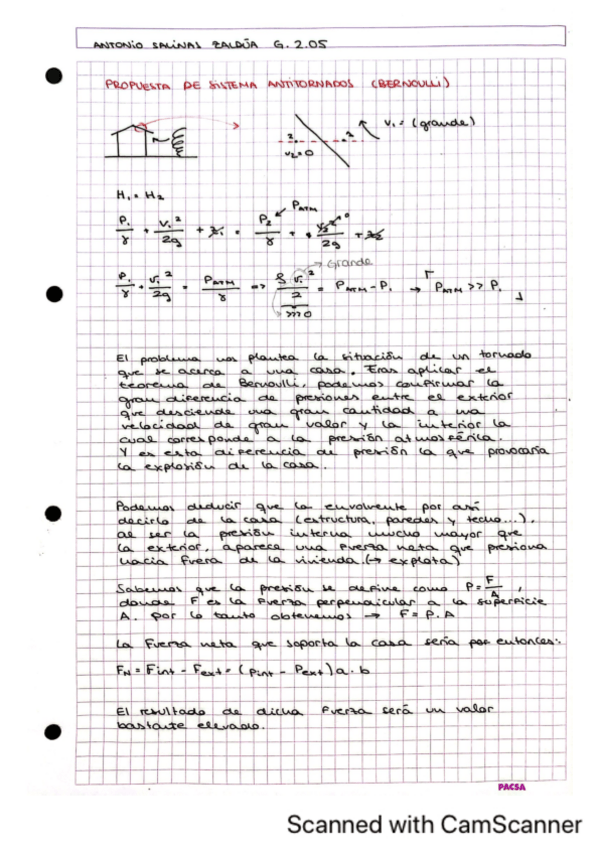 ANTONIO SALINAS ZALDÚA G. 2.05
PROPUESTA DE SISTEMA ANTITORNADOS (BERNOULLI)
2. V₂=0 1 V₁= (grande)
H₁ = H₂
P₁/γ + V₁²/2g + z₁ = P₂/γ + V₂²/2g + z₂
P_ATM 0
Grande
P₁/γ + V₁²/2g = P_ATM/γ => ρ V₁²/2 = P_ATM - P₁ → P_ATM >> P₁
>>> 0
El problema nos plantea la situación de un tornado
que se acerca a una casa. Tras aplicar el
teorema de Bernoulli, podemos confirmar la
gran diferencia de presiones entre el exterior
que desciende una gran cantidad a una
velocidad de gran valor y la interior la
cual corresponde a la presión atmosférica.
Y es esta diferencia de presión la que provocaría
la explosión de la casa.
Podemos deducir que la envolvente por así
decirlo de la casa (estructura, paredes y techo...),
al ser la presión interna mucho mayor que
la exterior, aparece una fuerza neta que presiona
hacia fuera de la vivienda. (→ explota)
Sabemos que la presión se define como P = F/A,
donde F es la fuerza perpendicular a la superficie
A. Por lo tanto obtenemos → F = P.A
La fuerza neta que soporta la casa sería por entonces:
F_N = Fint - Fext = (Pint - Pext) a . b
El resultado de dicha fuerza será un valor
bastante elevado.
PACSA
Scanned with CamScanner